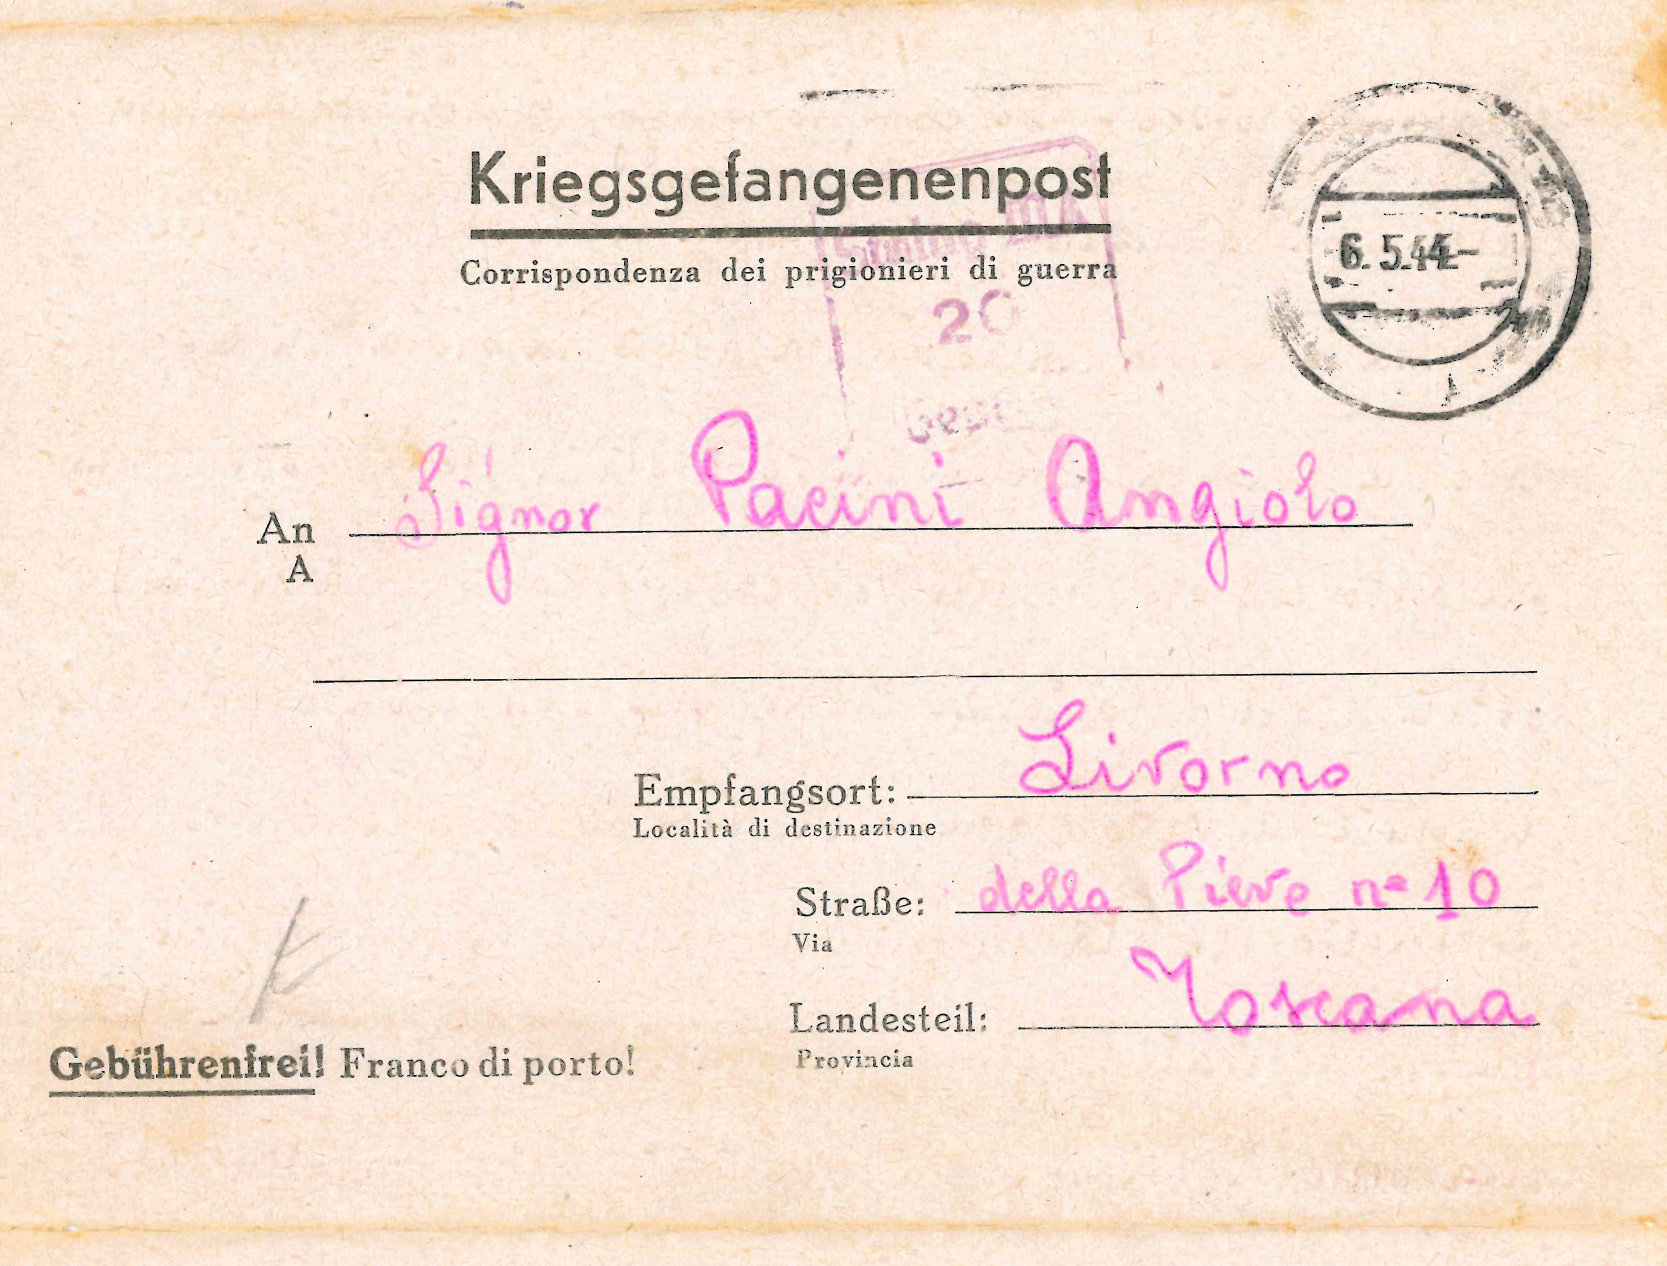 Kriegsgefangenenpost
Corrispondenza dei prigionieri di guerra
6.5.44.-
20
An Signor Pacini Angiolo
A
Empfangsort: Livorno
Località di destinazione
Straße: della Pieve n° 10
Via
Landesteil: Toscana
Provincia
Gebührenfrei! Franco di porto!